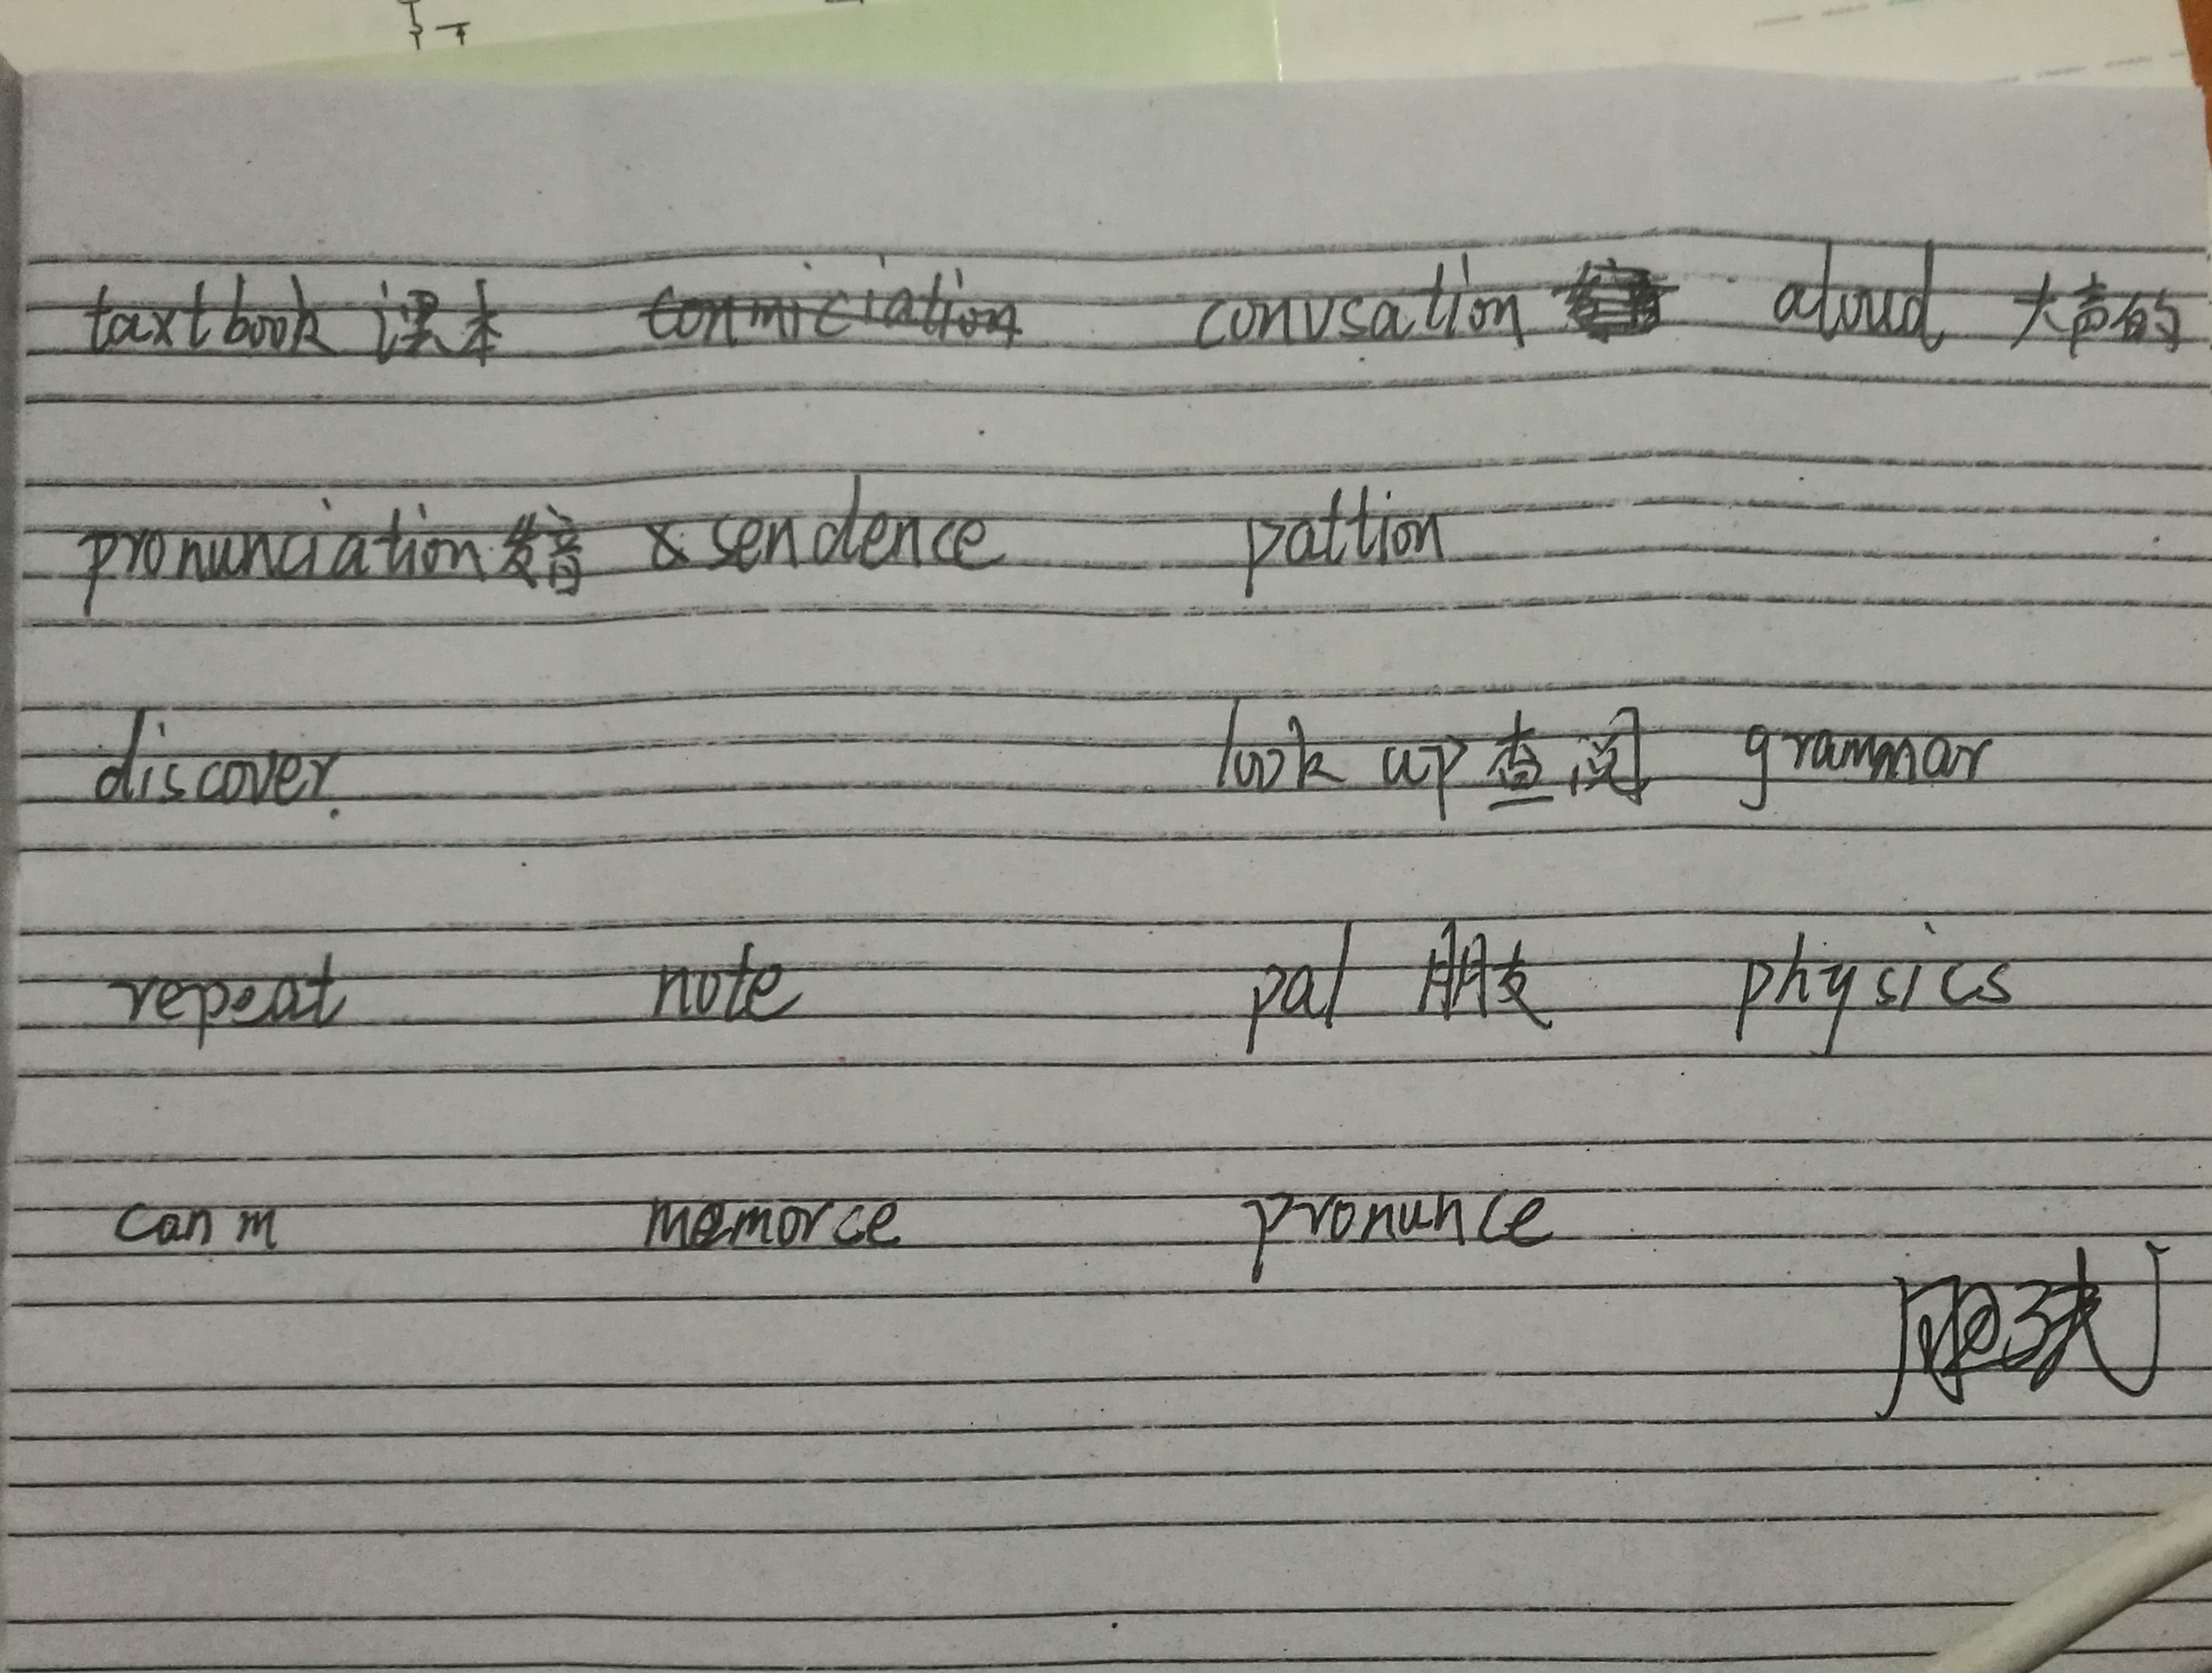 taxtbook 课本 conmiciation convsation aloud 大声的
pronunciation 发音 sendence pattion
discover. look up 查阅 grammar
repeat note pal 朋友 physics
can m memorce pronunce